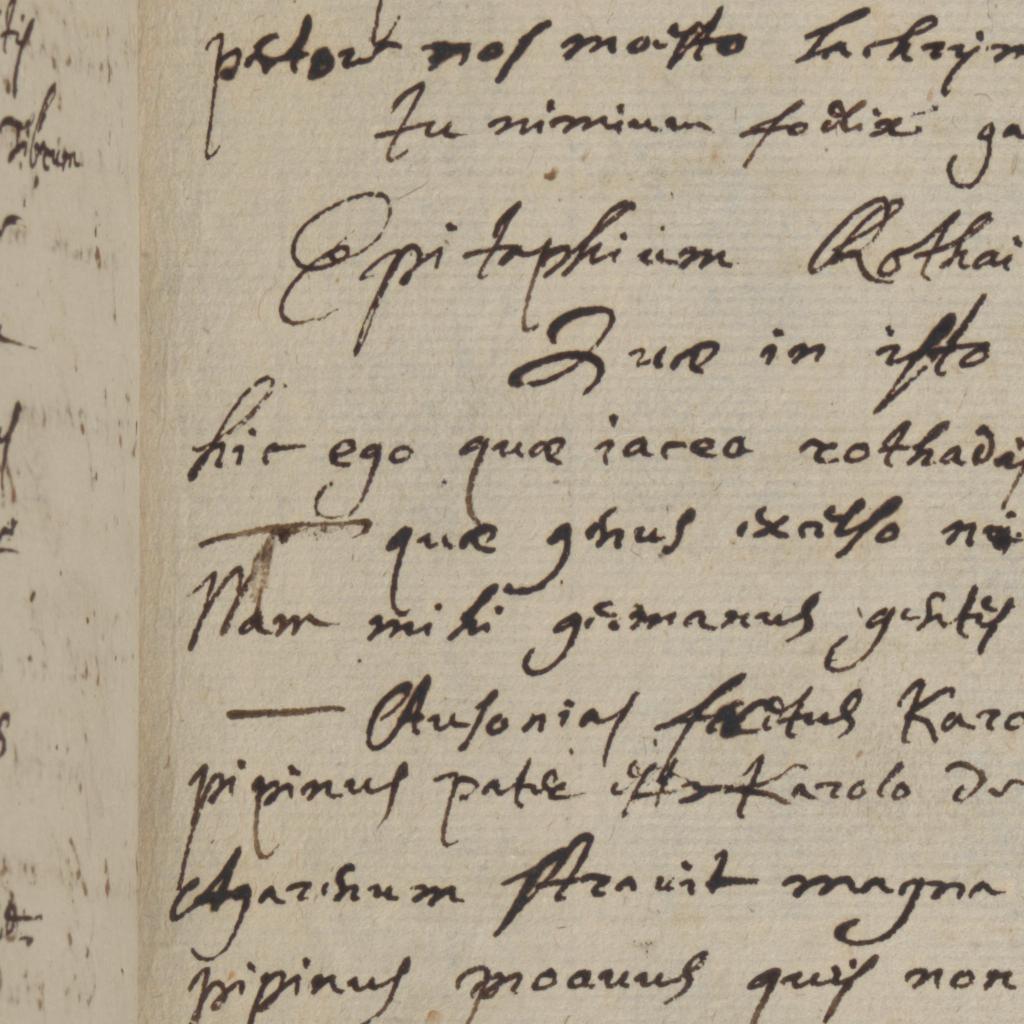 pectore nos moesto lachrym
tu nimium foelix ga
Epitaphium Rothai
Quae in isto
hic ego quae iaceo rothadis
quae genus excelso ni
Nam mihi germanus gentis
Ausonias fretus Karo
pipinus pater est Karolo de
Agarenum stravit magna
pipinus proavus quis non